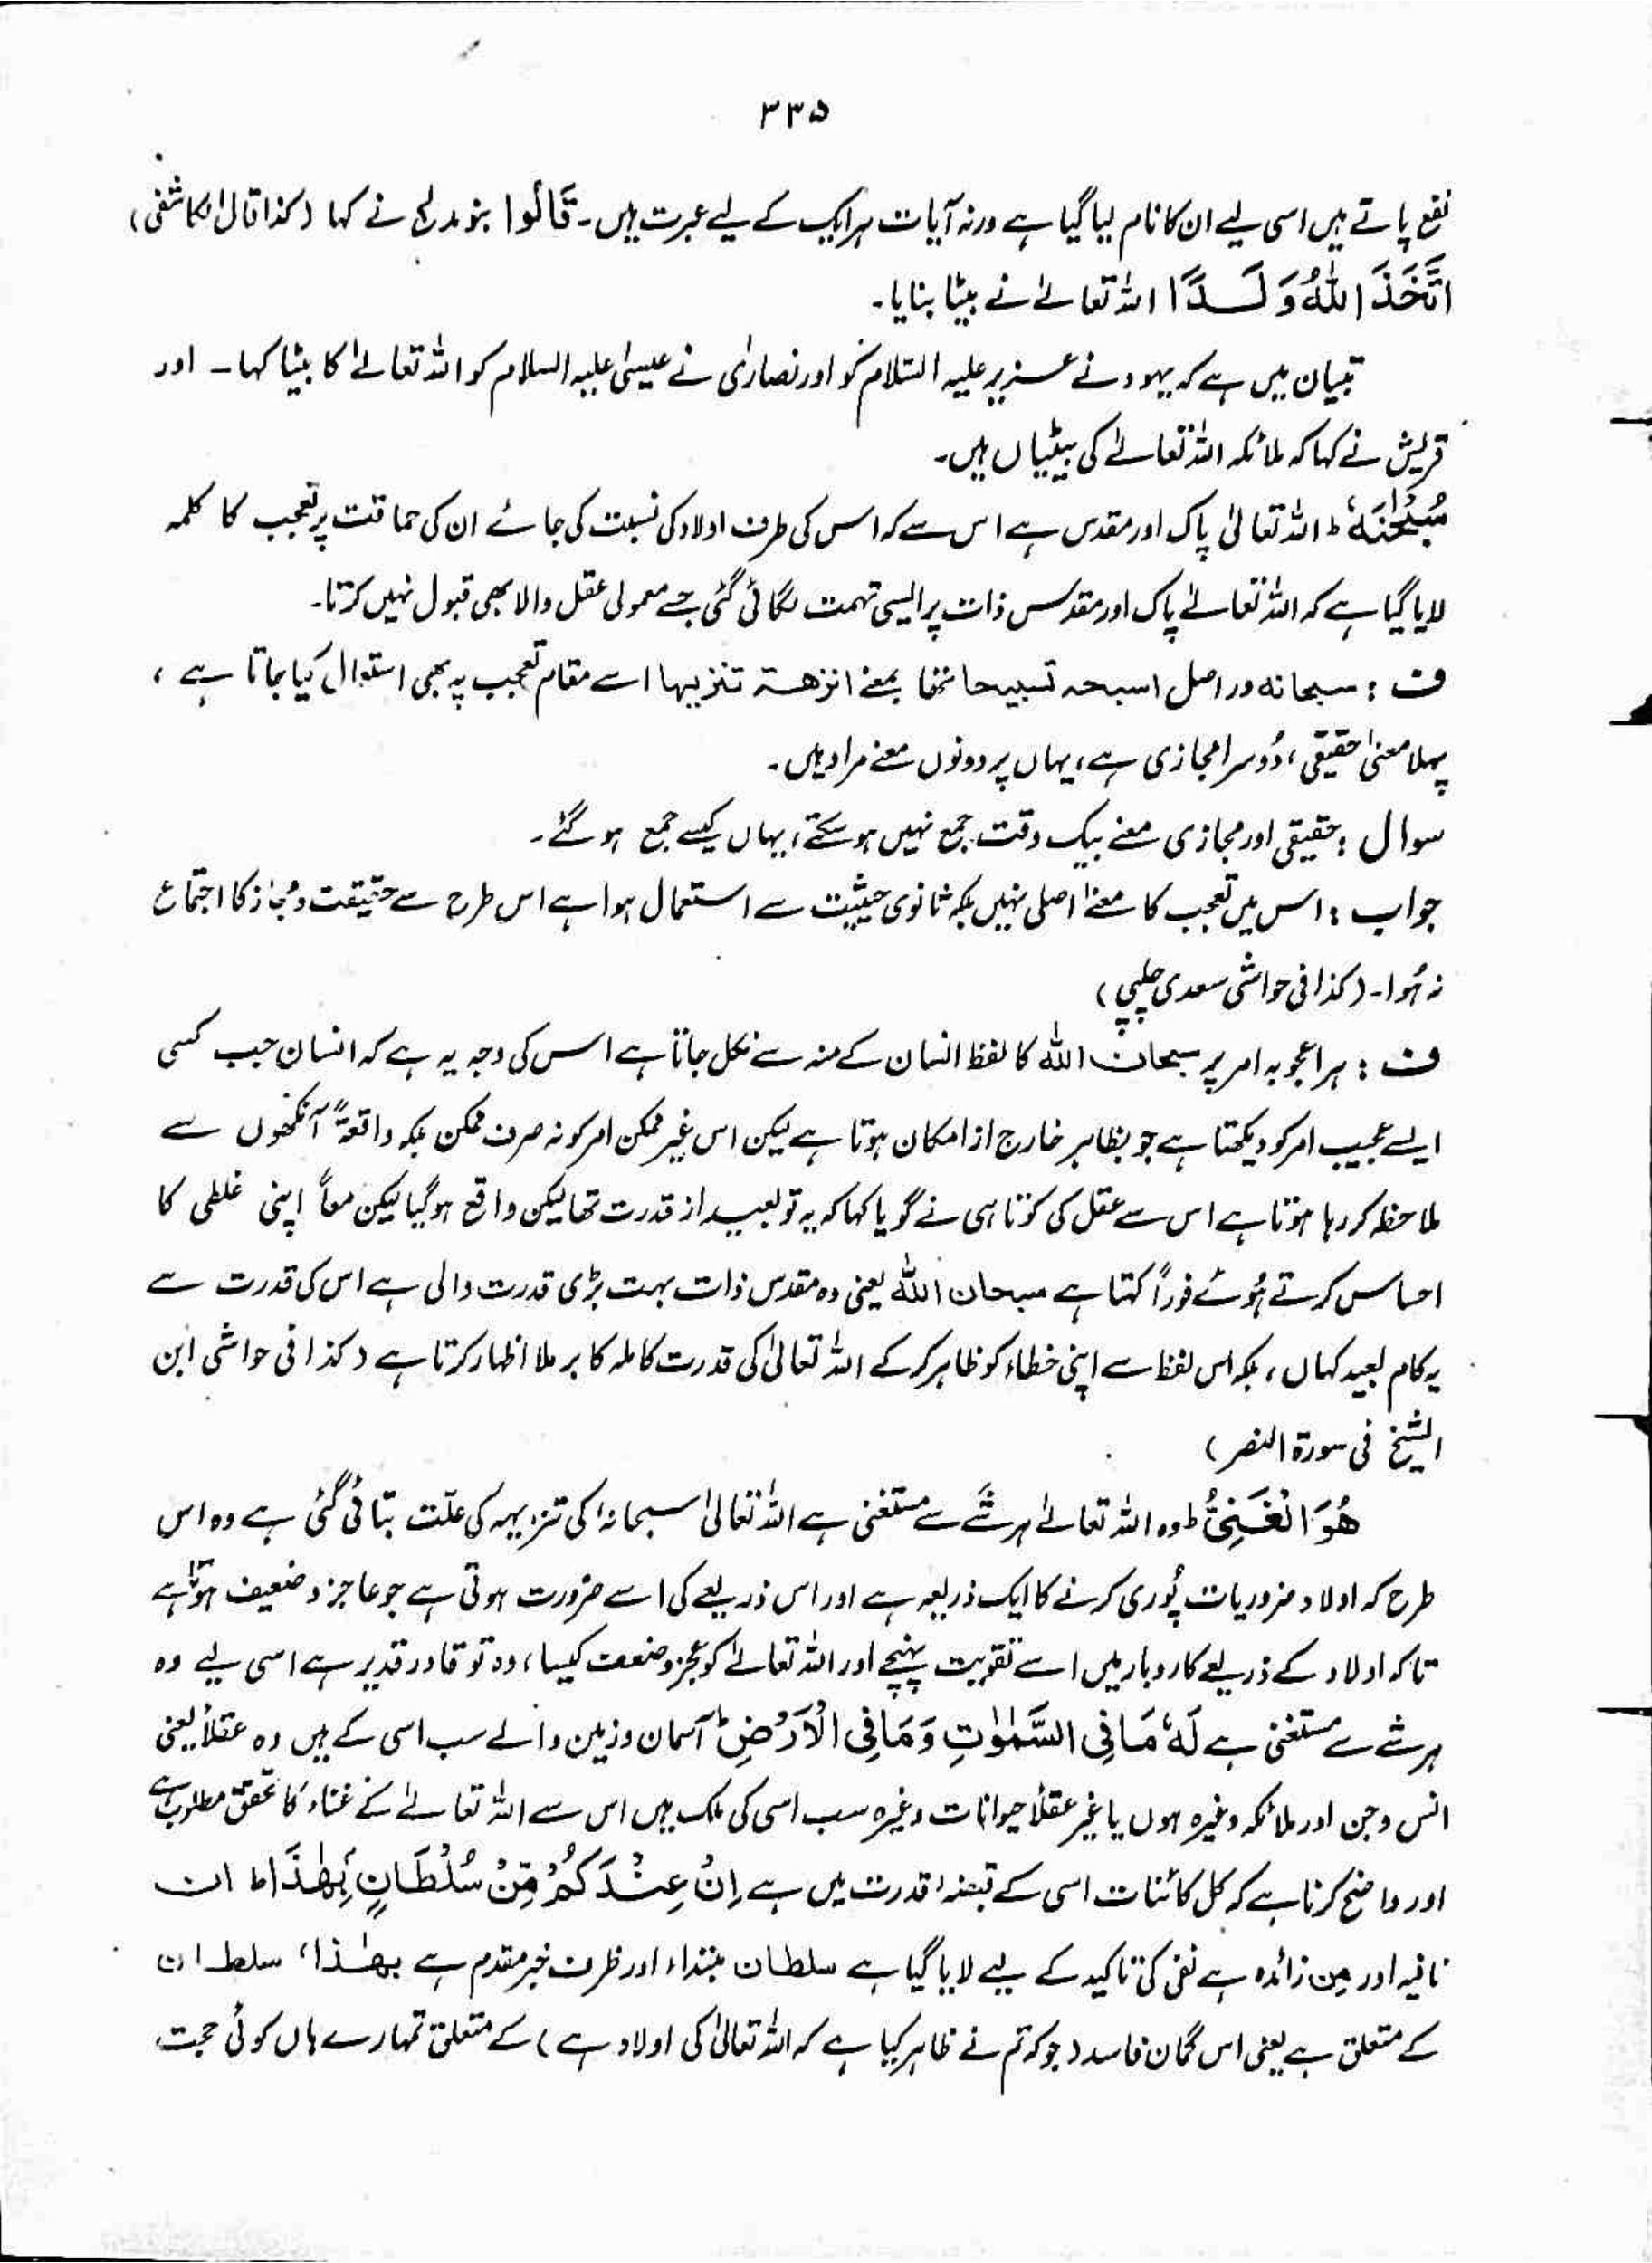 ۳۳۵
نفع پاتے ہیں اسی لیے ان کا نام لیا گیا ہے ورنہ آیات ہر ایک کے لیے عبرت ہیں۔ قَالُوا بنو مدلج نے کہا (کذا قال الکاشفی)
اتَّخَذَ اللّٰهُ وَلَدًا اللہ تعالےٰ نے بیٹا بنایا۔
تبیان میں ہے کہ یہود نے عزیر علیہ السّلام کو اور نصارٰی نے عیسیٰ علیہ السلام کو اللہ تعالےٰ کا بیٹا کہا۔ اور
قریش نے کہا کہ ملائکہ اللہ تعالےٰ کی بیٹیاں ہیں۔
سُبْحٰنَهٗ ط اللہ تعالیٰ پاک اور مقدس ہے اس سے کہ اس کی طرف اولاد کی نسبت کی جائے ان کی حماقت پر تعجب کا کلمہ
لایا گیا ہے کہ اللہ تعالےٰ پاک اور مقدس ذات پر ایسی تہمت لگائی گئی جسے معمولی عقل والا بھی قبول نہیں کرتا۔
ف : سبحانہ دراصل اسبحہ تسبیحا تھا بمعنے انزھہ تنزیہا اسے مقام تعجب پہ بھی استعمال کیا جاتا ہے ،
پہلا معنیٰ حقیقی ، دُوسرا مجازی ہے ، یہاں پر دونوں معنے مراد ہیں۔
سوال : حقیقی اور مجازی معنے بیک وقت جمع نہیں ہو سکتے ، یہاں کیسے جمع ہو گئے۔
جواب : اس میں تعجب کا معنےٰ اصلی نہیں بلکہ ثانوی حیثیت سے استعمال ہوا ہے اس طرح سے حقیقت و مجاز کا اجتماع
نہ ہُوا۔ (کذا فی حواشی سعدی چلپی)
ف : ہر اعجوبہ امر پر سبحان اللّٰہ کا لفظ انسان کے منہ سے نکل جاتا ہے اس کی وجہ یہ ہے کہ انسان جب کسی
ایسے عجیب امر کو دیکھتا ہے جو بظاہر خارج از امکان ہوتا ہے لیکن اس غیر ممکن امر کو نہ صرف ممکن بلکہ واقعۃً آنکھوں سے
ملاحظہ کر رہا ہوتا ہے اس سے عقل کی کوتاہی نے گویا کہا کہ یہ تو بعید از قدرت تھا لیکن واقع ہو گیا لیکن معاً اپنی غلطی کا
احساس کرتے ہُوئے فوراً کہتا ہے سبحان اللّٰہ یعنی وہ مقدس ذات بہت بڑی قدرت والی ہے اس کی قدرت سے
یہ کام بعید کہاں ، بلکہ اس لفظ سے اپنی خطاء کو ظاہر کر کے اللہ تعالیٰ کی قدرت کاملہ کا برملا اظہار کرتا ہے (کذا فی حواشی ابن
الشیخ فی سورۃ النصر)
هُوَ الْغَنِيُّ ط وہ اللہ تعالےٰ ہر شے سے مستغنی ہے اللہ تعالیٰ سبحانہٗ کی تنزیہہ کی علّت بتائی گئی ہے وہ اس
طرح کہ اولاد ضروریات پُوری کرنے کا ایک ذریعہ ہے اور اس ذریعے کی اسے ضرورت ہوتی ہے جو عاجز و ضعیف ہوتا ہے
تاکہ اولاد کے ذریعے کاروبار میں اسے تقویت پہنچے اور اللہ تعالےٰ کو عجز و ضعف کیسا ، وہ تو قادر قدیر ہے اسی لیے وہ
ہر شے سے مستغنی ہے لَهٗ مَا فِی السَّمٰوٰتِ وَمَا فِی الْاَرْضِ ط آسمان و زمین والے سب اسی کے ہیں وہ عقلاً یعنی
انس و جن اور ملائکہ وغیرہ ہوں یا غیر عقلاً حیوانات وغیرہ سب اسی کی ملک ہیں اس سے اللہ تعالےٰ کے غناء کا تحقق مطلوب ہے
اور واضح کرنا ہے کہ کل کائنات اسی کے قبضہ قدرت میں ہے اِنْ عِنْدَكُمْ مِّنْ سُلْطَانٍ بِهٰذَا ط ان
نافیہ اور مِن زائدہ ہے نفی کی تاکید کے لیے لایا گیا ہے سلطان مبتداء اور ظرف خبر مقدم ہے بھٰذا، سلطان
کے متعلق ہے یعنی اس گمان فاسد (جو کہ تم نے ظاہر کیا ہے کہ اللہ تعالیٰ کی اولاد ہے) کے متعلق تمہارے ہاں کوئی حجت